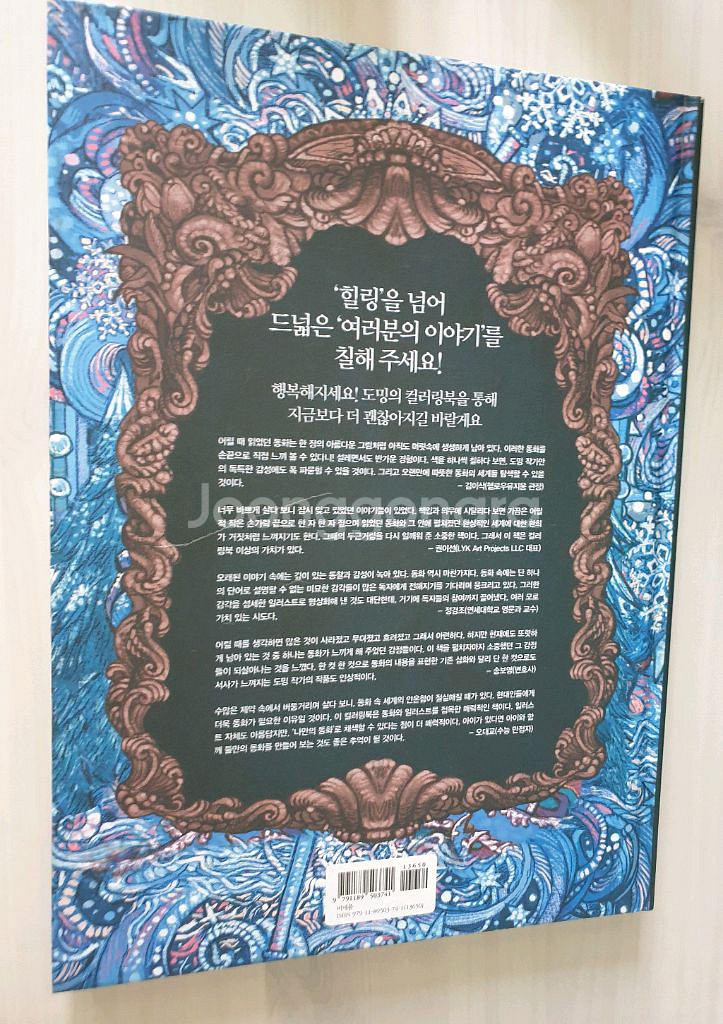 ‘힐링’을 넘어
드넓은 ‘여러분의 이야기’를
칠해 주세요!
행복해지세요! 도밍의 컬러링북을 통해
지금보다 더 괜찮아지길 바랄게요
어릴 때 읽었던 동화는 한 장의 아름다운 그림처럼 아직도 머릿속에 생생하게 남아 있다. 이러한 동화를
손끝으로 직접 느껴 볼 수 있다니! 설레면서도 반가운 경험이다. 색을 하나씩 칠하다 보면, 도밍 작가만
의 독특한 감성에도 푹 파묻힐 수 있을 것이다. 그리고 오랜만에 따뜻한 동화의 세계를 탐색할 수 있을
것이다.
– 김이식(헬로우뮤지움 관장)
너무 바쁘게 살다 보니 잠시 잊고 있었던 이야기들이 있었다. 책임과 의무에 시달리다 보면 가끔은 어릴
적 작은 손가락 끝으로 한 자 한 자 짚으며 읽었던 동화와 그 안에 펼쳐졌던 환상적인 세계에 대한 환희
가 거짓처럼 느껴지기도 한다. 그때의 두근거림을 다시 일깨워 준 소중한 책이다. 그래서 이 책은 컬러
링북 이상의 가치가 있다.
– 권이선(LYK Art Projects LLC 대표)
오래된 이야기 속에는 깊이 있는 통찰과 감성이 녹아 있다. 동화 역시 마찬가지다. 동화 속에는 단 하나
의 단어로 설명할 수 없는 미묘한 감각들이 많은 독자에게 전해지기를 기다리며 웅크리고 있다. 그러한
감각을 섬세한 일러스트로 형상화해 낸 것도 대단한데, 거기에 독자들의 참여까지 끌어냈다. 여러 모로
가치 있는 시도다.
– 정경조(연세대학교 영문과 교수)
어릴 때를 생각하면 많은 것이 사라졌고 무뎌졌고 흐려졌고 그래서 아련하다. 하지만 현재에도 또렷하
게 남아 있는 것 중 하나는 동화가 느끼게 해 주었던 감정들이다. 이 책을 펼치자마자 소중했던 그 감정
들이 되살아나는 것을 느꼈다. 한 컷 한 컷으로 동화의 내용을 표현한 기존 삽화와 달리 단 한 컷으로도
서사가 느껴지는 도밍 작가의 작품도 인상적이다.
– 송보영(변호사)
수많은 제약 속에서 버둥거리며 살다 보니, 동화 속 세계의 안온함이 절실해질 때가 있다. 현대인들에게
더욱 동화가 필요한 이유일 것이다. 이 컬러링북은 동화와 일러스트를 접목한 매력적인 책이다. 일러스
트 자체도 아름답지만, ‘나만의 동화’로 채색할 수 있다는 점이 더 매력적이다. 아이가 있다면 아이와 함
께 둘만의 동화를 만들어 보는 것도 좋은 추억이 될 것이다.
– 오대교(수능 만점자)
13650
9 791189 503741
비에블
ISBN 979-11-89503-74-1(13650)
Joonggonara